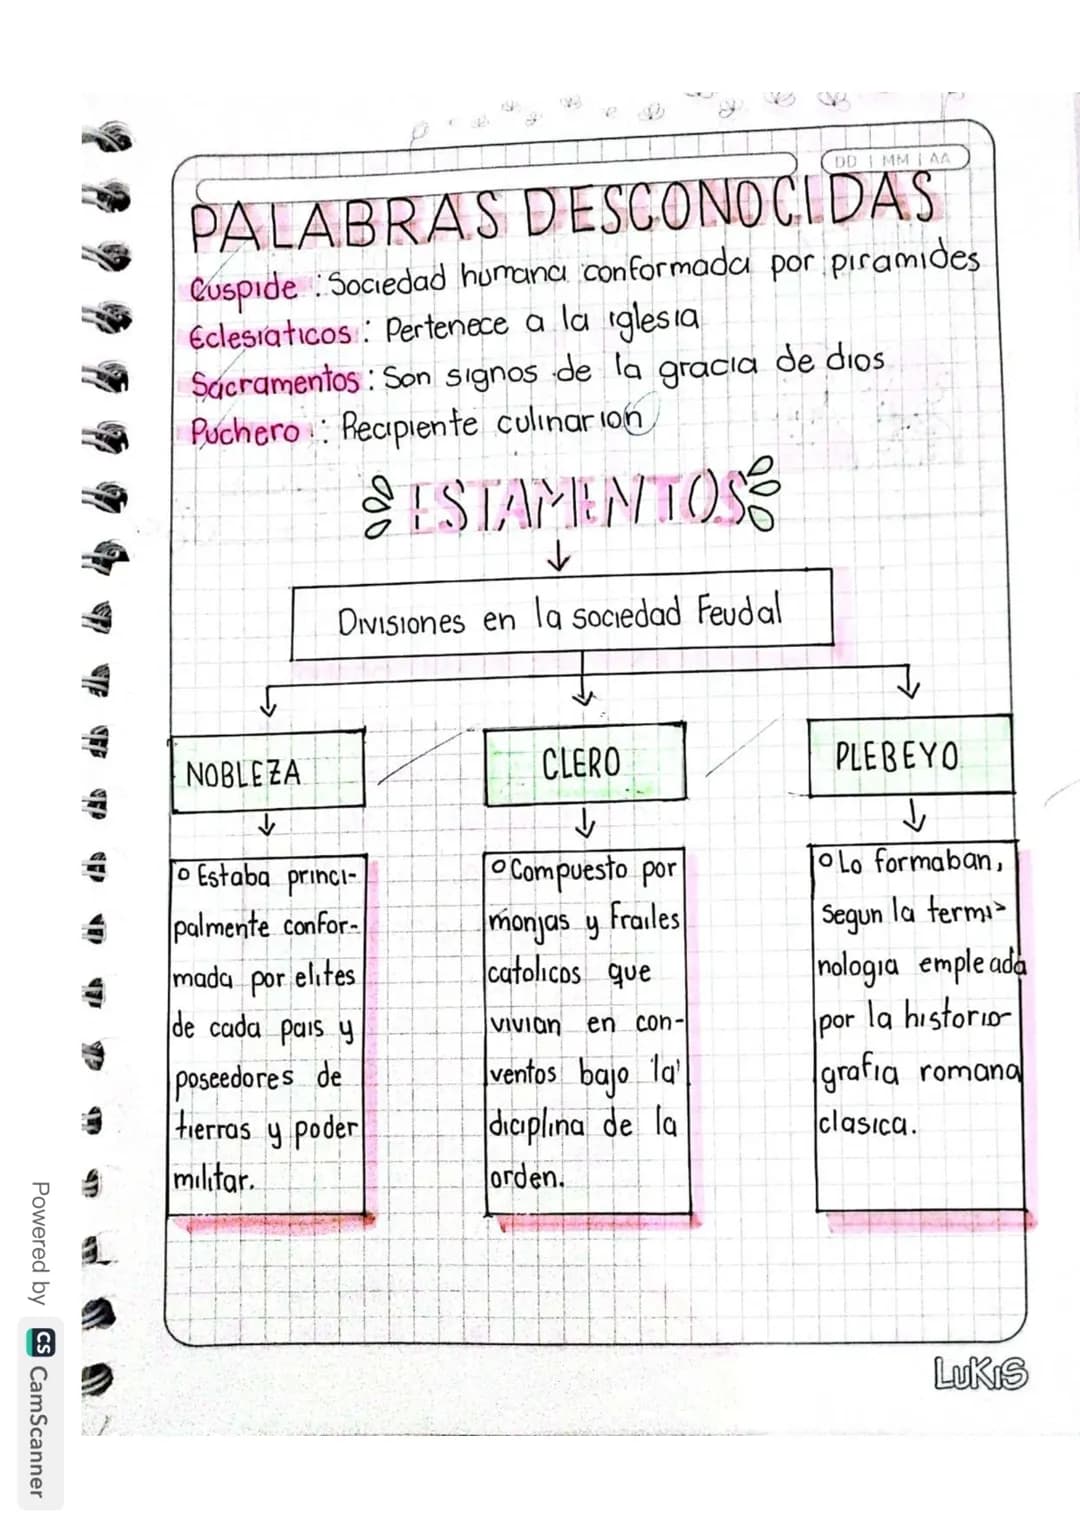 DD | MM | AA
PALABRAS DESCONOCIDAS
Cuspide : Sociedad humana conformada por piramides
Eclesiaticos : Pertenece a la iglesia
Sacramentos : Son signos de la gracia de dios
Puchero : Recipiente culinarion
ESTAMENTOS
Divisiones en la sociedad Feudal
NOBLEZA
Estaba princi-
palmente confor-
mada por elites
de cada pais y
poseedores de
tierras y poder
militar.
CLERO
Compuesto por
monjas y Frailes
catolicos que
vivian en con-
ventos bajo la
diciplina de la
orden.
PLEBEYO
Lo formaban,
segun la termi-
nologia empleada
por la historio-
grafia romana
clasica.
LUKIS
Powered by CS CamScanner